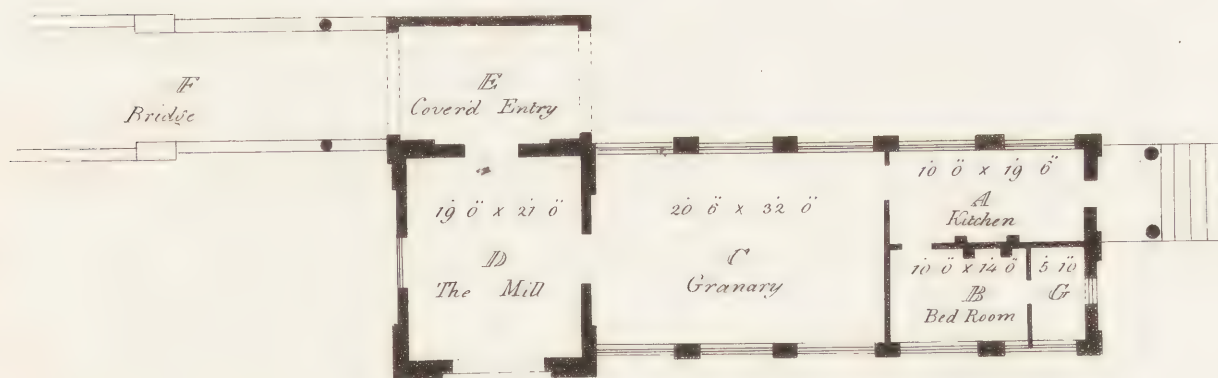 F
Bridge
E
Cover'd Entry
19 0 x 21 0
D
The Mill
20 6 x 32 0
C
Granary
10 0 x 19 6
A
Kitchen
10 0 x 14 0
B
Bed Room
5 10
G